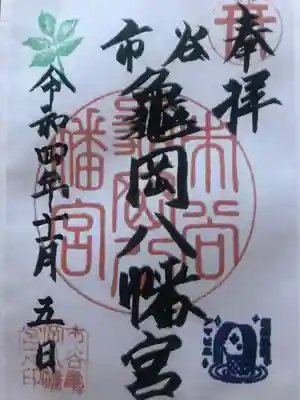 奉拝
市谷
龜岡八幡宮
令和四年十一月五日
市谷
龜岡八
幡宮
市谷亀
岡八幡
宮之印